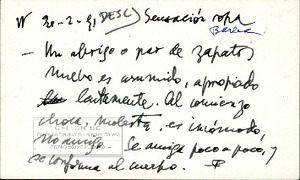 20-2-91 DESC) Sensación ropa
— Un abrigo o par de zapatos
nuevo es asumido, apropiado
lentamente. Al comienzo
choca, molesta, es incómodo,
no amiga. Se amiga poco a poco, y
se conforma al cuerpo.